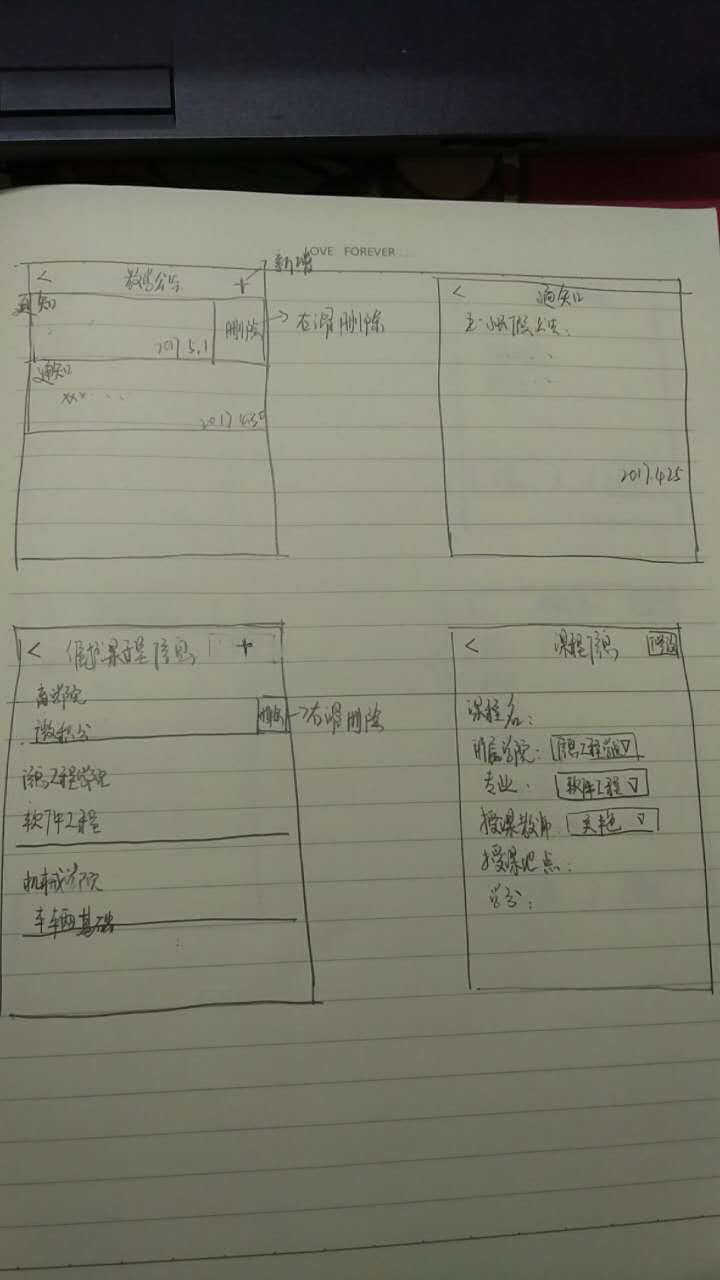 LOVE FOREVER...
新增
< 教学公告 +
通知
2017.5.1
删除
右滑删除
通知
xxx...
2017.4.30
< 通知
2017.4.25
< 维护课程信息 +
商学院
微积分
删除
右滑删除
信息工程学院
软件工程
机械学院
车辆基础
< 课程信息
课程名:
所属学院: 信息工程学院▽
专业: 软件工程▽
授课教师 ▽
授课地点:
学分: